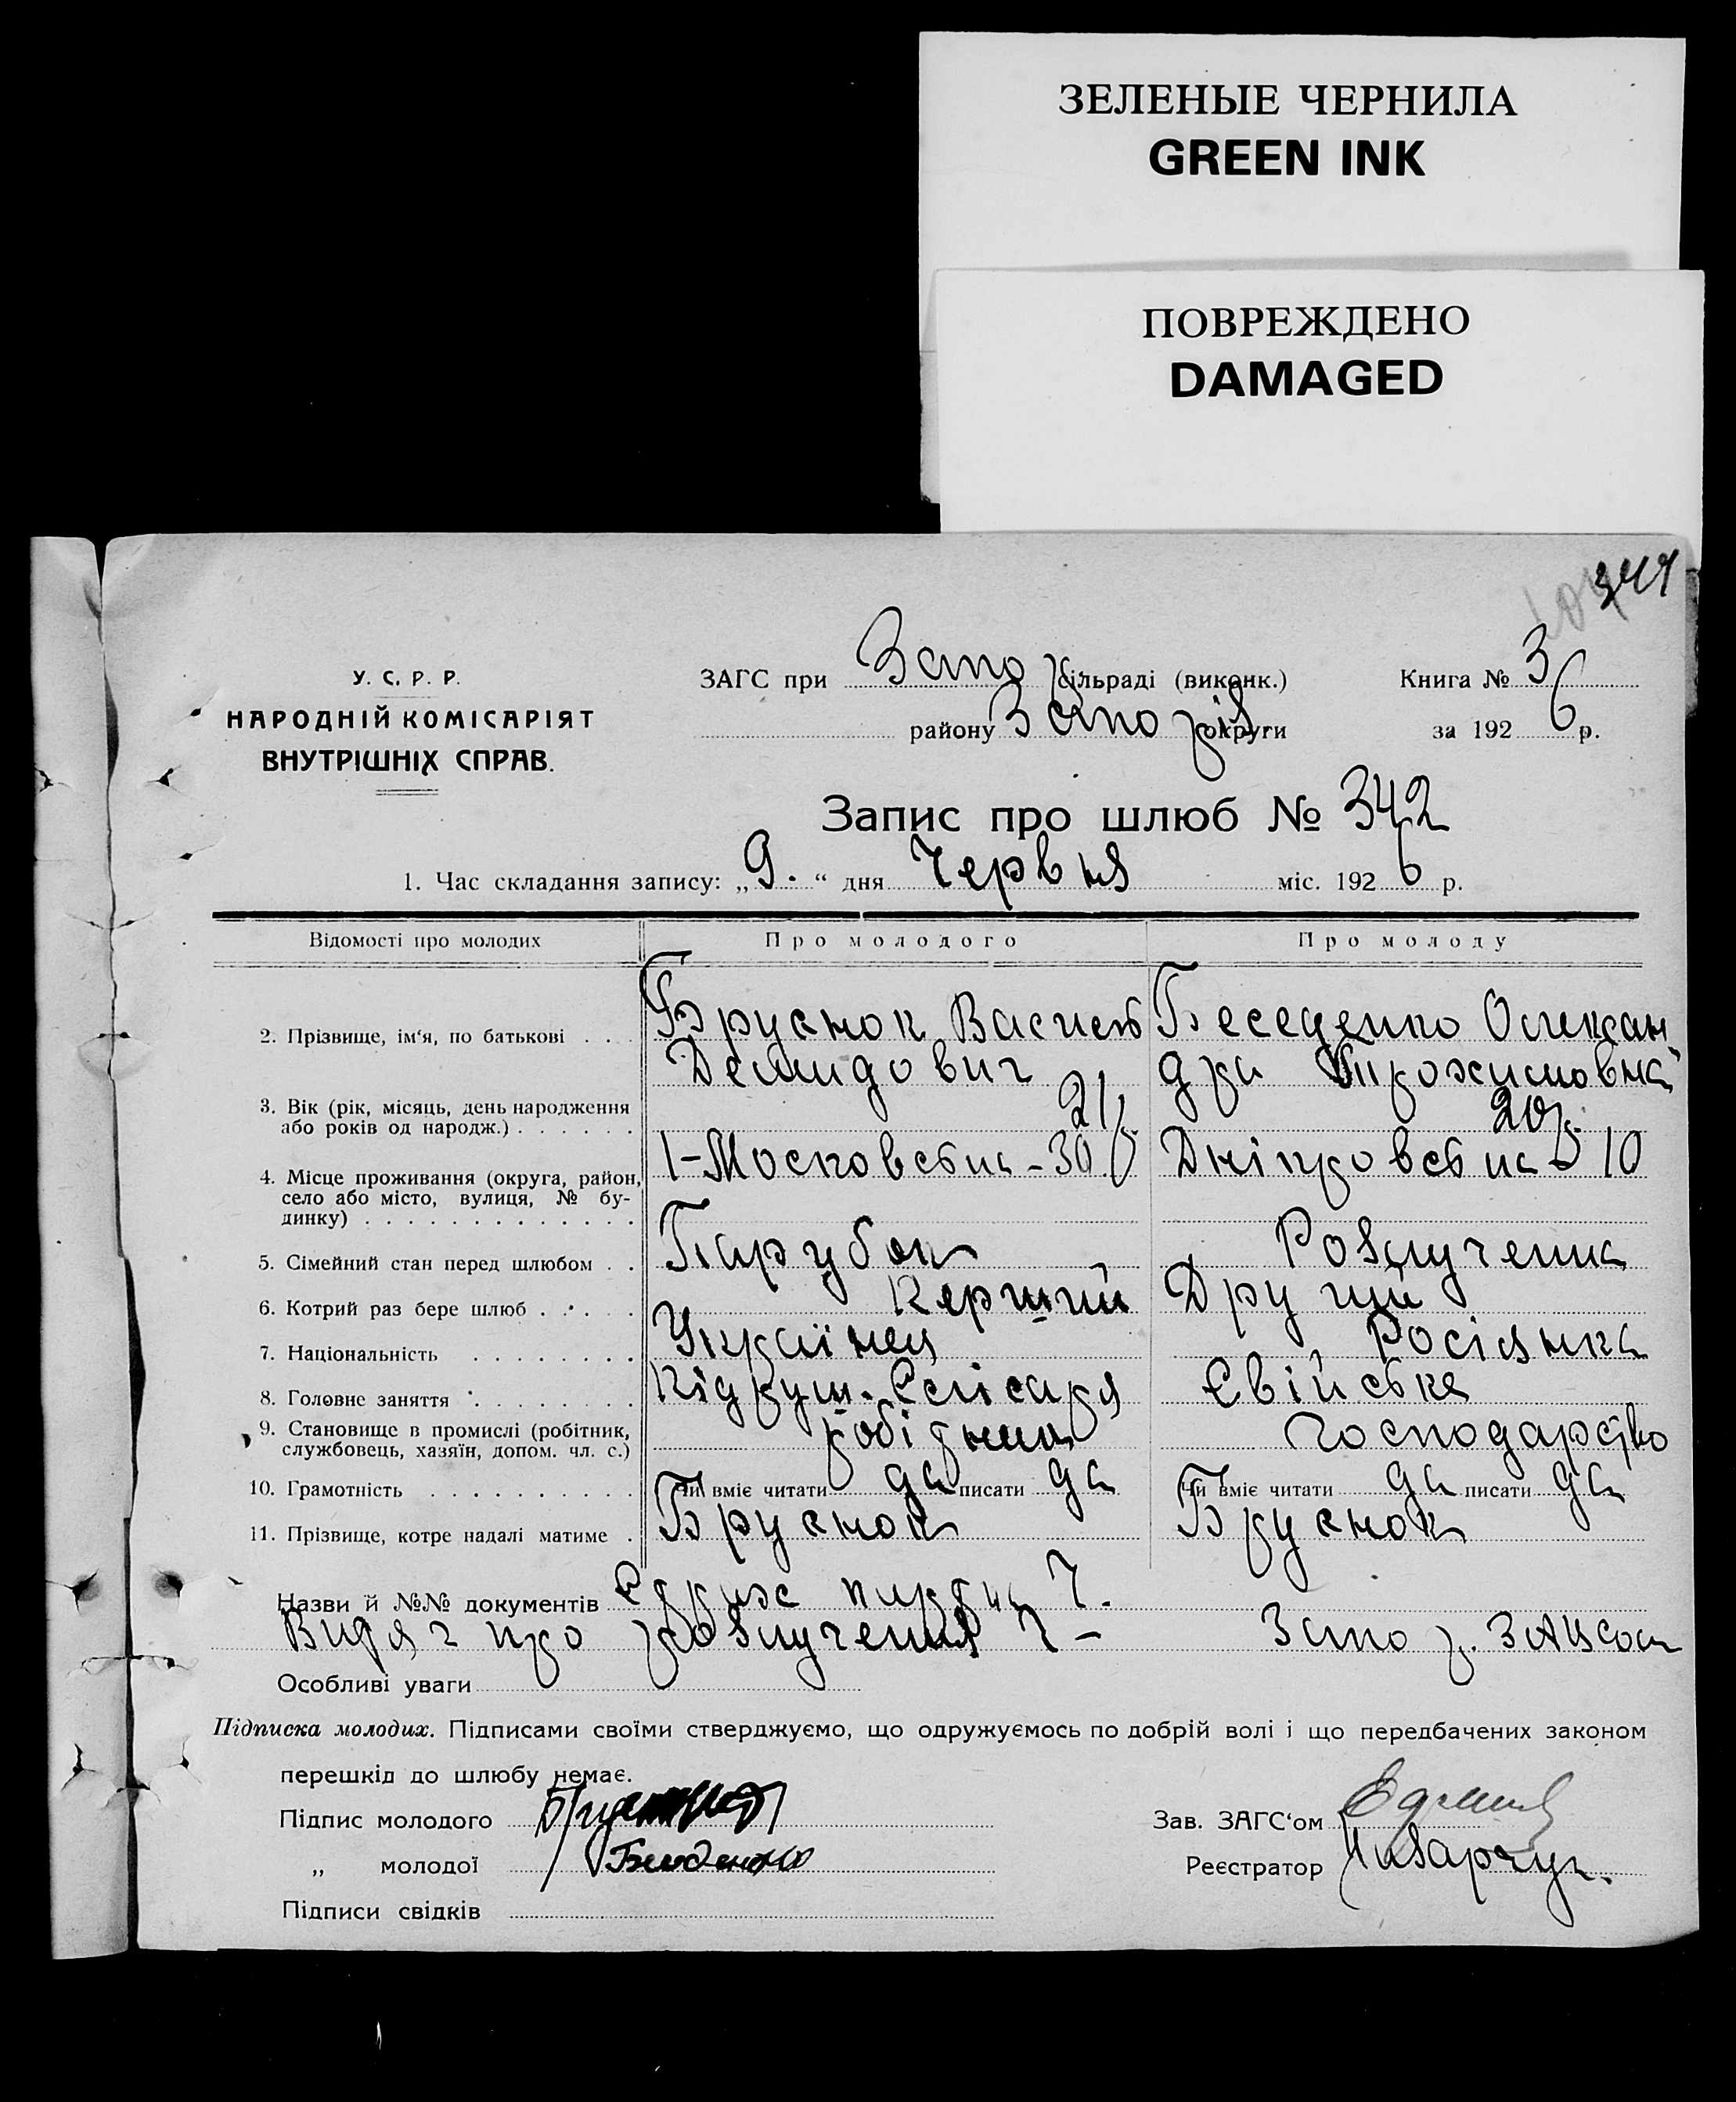 ЗЕЛЕНЫЕ ЧЕРНИЛА
GREEN INK
ПОВРЕЖДЕНО
DAMAGED
У. С. Р. Р.
НАРОДНІЙ КОМІСАРІЯТ
ВНУТРІШНІХ СПРАВ.
ЗАГС при Запор сільраді (виконк.)
району Запоріз округи
Книга № 3
за 1926 р.
Запис про шлюб № 342
1. Час складання запису: „9.“ дня Червня міс. 1926 р.
Відомості про молодих Про молодого Про молоду
2. Прізвище, ім‘я, по батькові Бруснок Василь Беседенко Олексан
Демидович дра
3. Вік (рік, місяць, день народження 21 р. 20 р.
або років од народж.)
4. Місце проживання (округа, район, І-Московська - 30 Дніпровська 10
село або місто, вулиця, № бу-
динку)
5. Сімейний стан перед шлюбом Парубок Розлучена
6. Котрий раз бере шлюб Перший Другий
7. Національність Українец Росіянка
8. Головне заняття Підруч. Слісаря Свійське
9. Становище в промислі (робітник, робітник господарство
службовець, хазяїн, допом. чл. с.)
10. Грамотність Чи вміє читати да писати да Чи вміє читати да писати да
11. Прізвище, котре надалі матиме Бруснок Бруснок
Назви й №№ документів
Витяг про розлучення Запор.
Особливі уваги
Підписка молодих. Підписами своїми стверджуємо, що одружуємось по добрій волі і що передбачених законом
перешкід до шлюбу немає.
Підпис молодого
Зав. ЗАГС‘ом
„ молодої Беседенко
Реєстратор
Підписи свідків